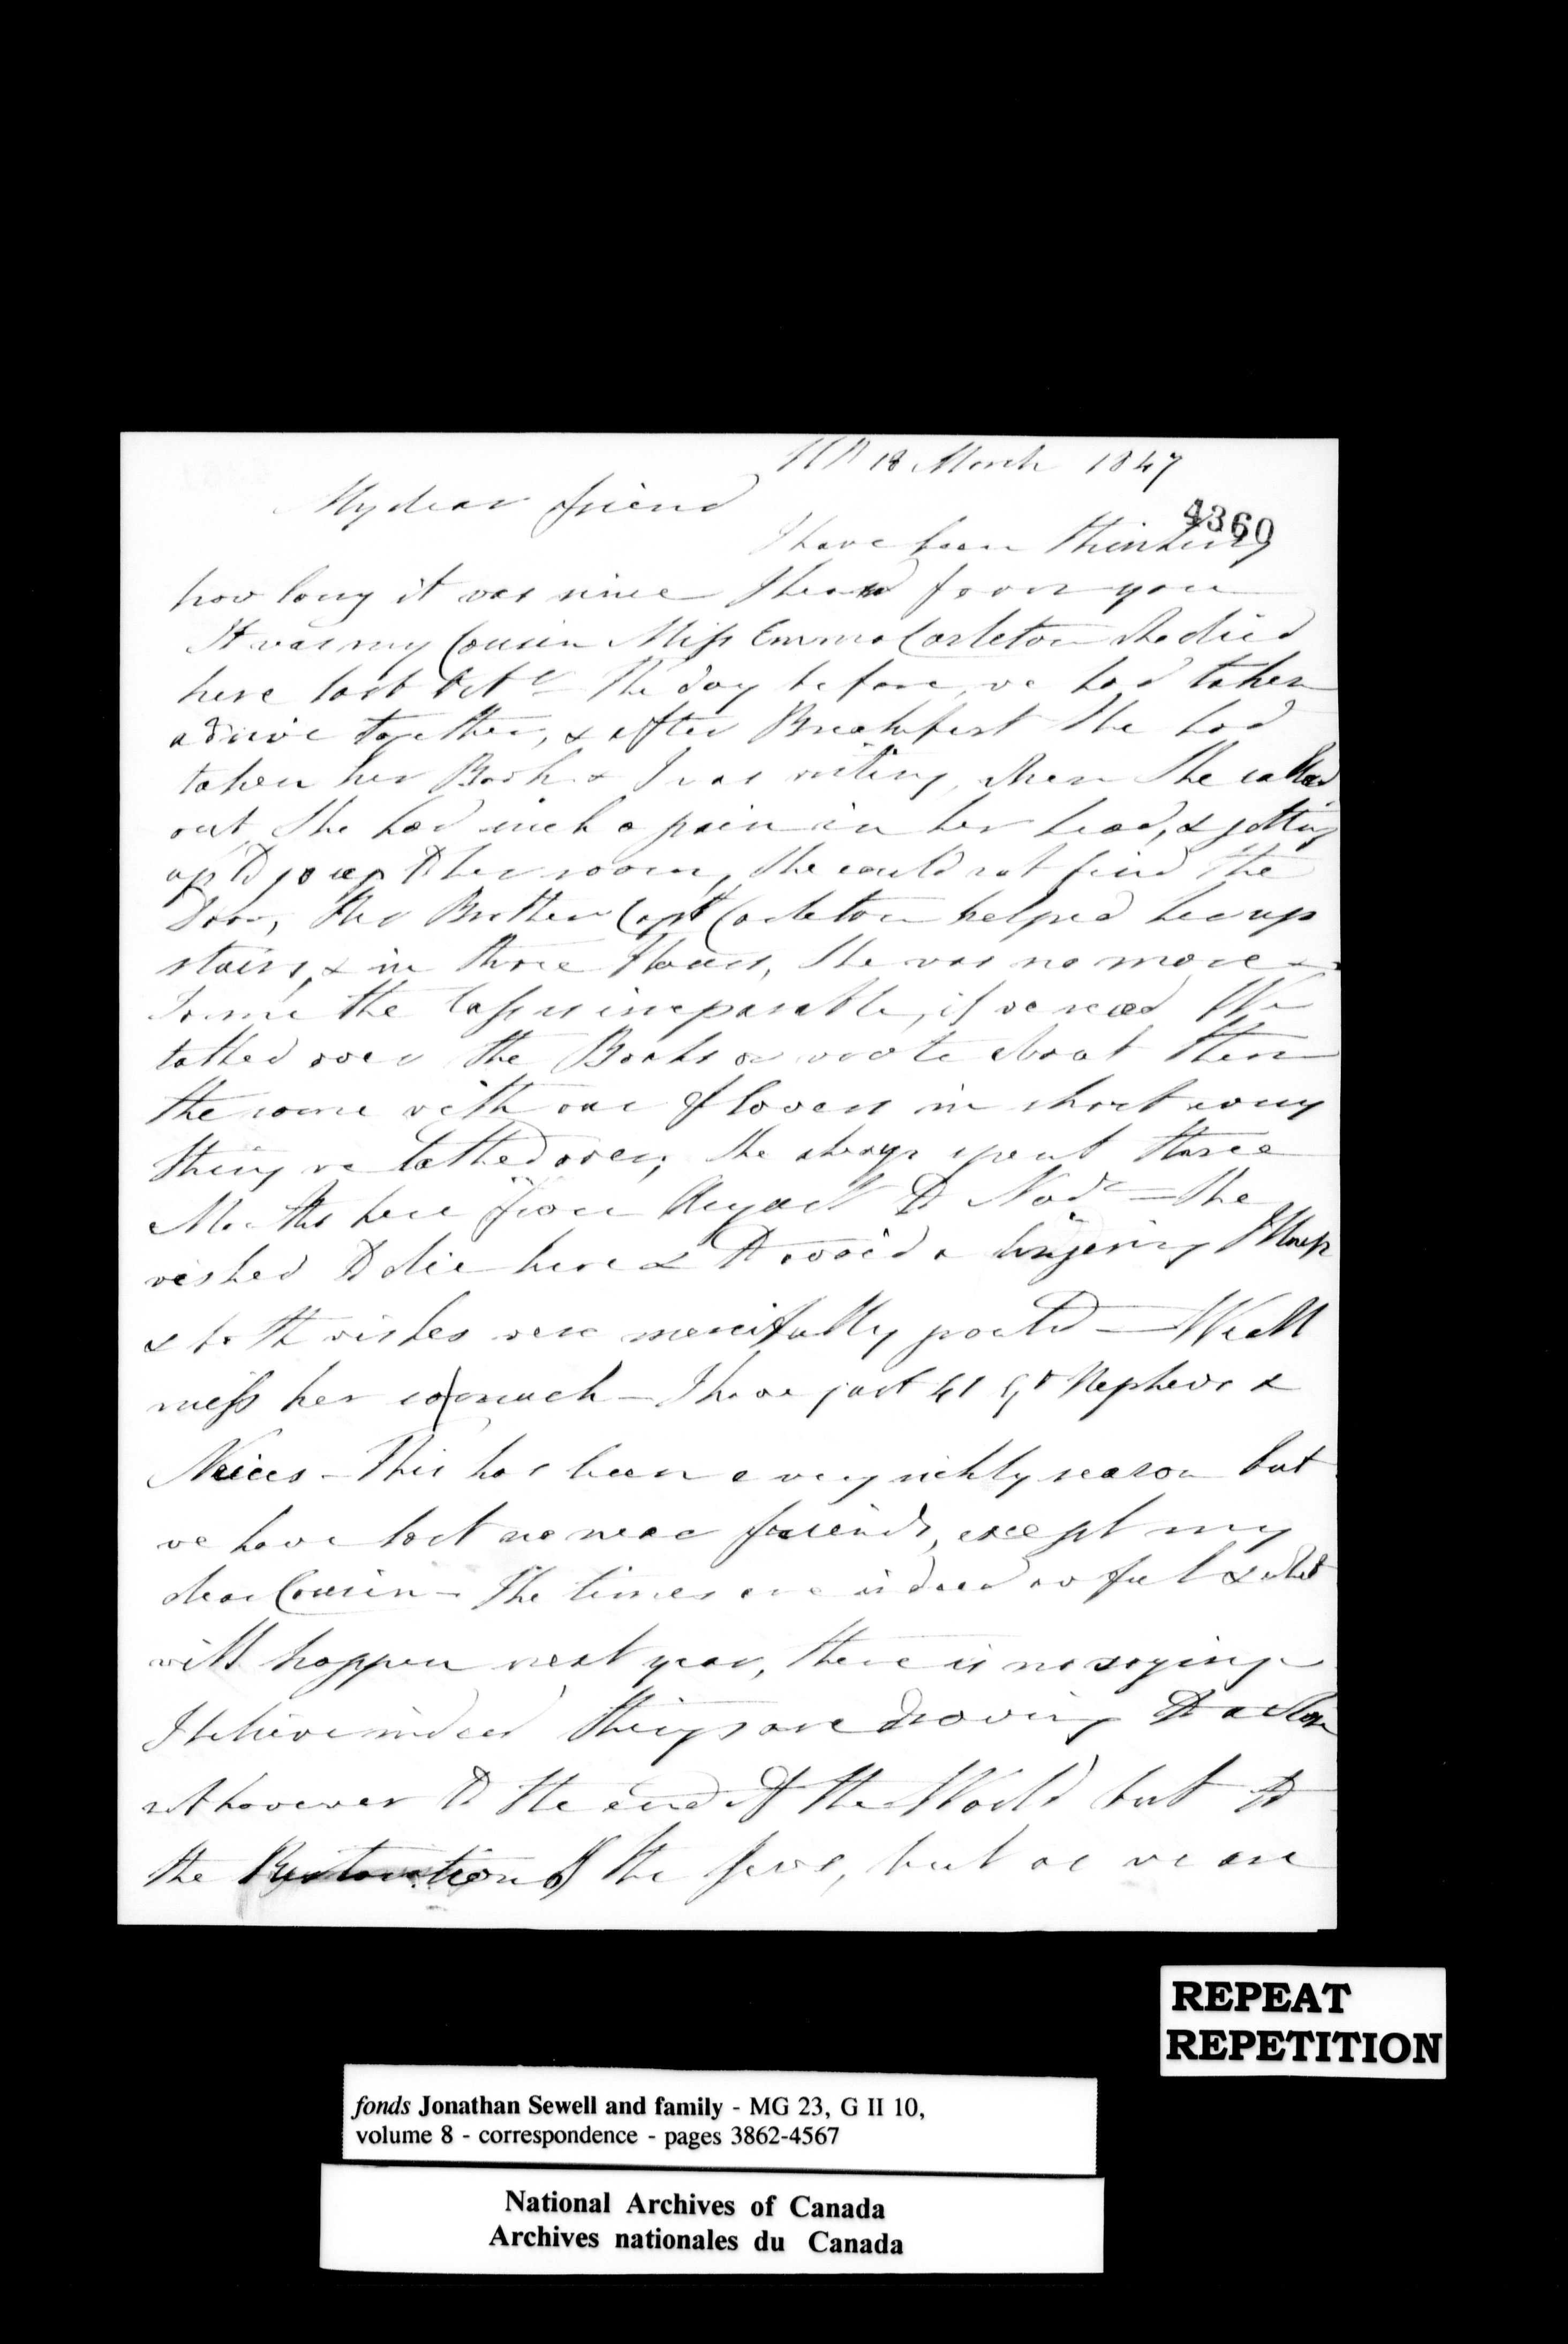 18 March 1847
My dear friend
4360
I have been thinking
how long it was since I heard from you
It was my Cousin Miss Emma Carleton she died
here last Octr The day before, we had taken
a drive together, & after Breakfast She had
taken her Book & I was writing, when She called
out, She had such a pain in her head, & getting
up to go up to her room, She could not find the
Door, Her Brother Capt Carleton helped her up
stairs, & in three Hours, She was no more
To me the loss is irreparable, if we read We
talked over the Books or wrote about them
the same with our flowers in short every
thing we talked over, She always spent three
Months here from August to Novr – She
wished to die here & to avoid a lingering Illness
& both wishes were mercifully granted – We all
miss her so much – I have just 41 Gt Nephews &
Neices – This has been a very sickly season but
we have lost no near friends, except my
dear Cousin – The times are indeed awful & what
will happen next year, there is no saying
I believe indeed things are drawing to a close
not however to the end of the World but to
the Restoration of the Jews, but as we are
REPEAT
REPETITION
fonds Jonathan Sewell and family - MG 23, G II 10,
volume 8 - correspondence - pages 3862-4567
National Archives of Canada
Archives nationales du Canada